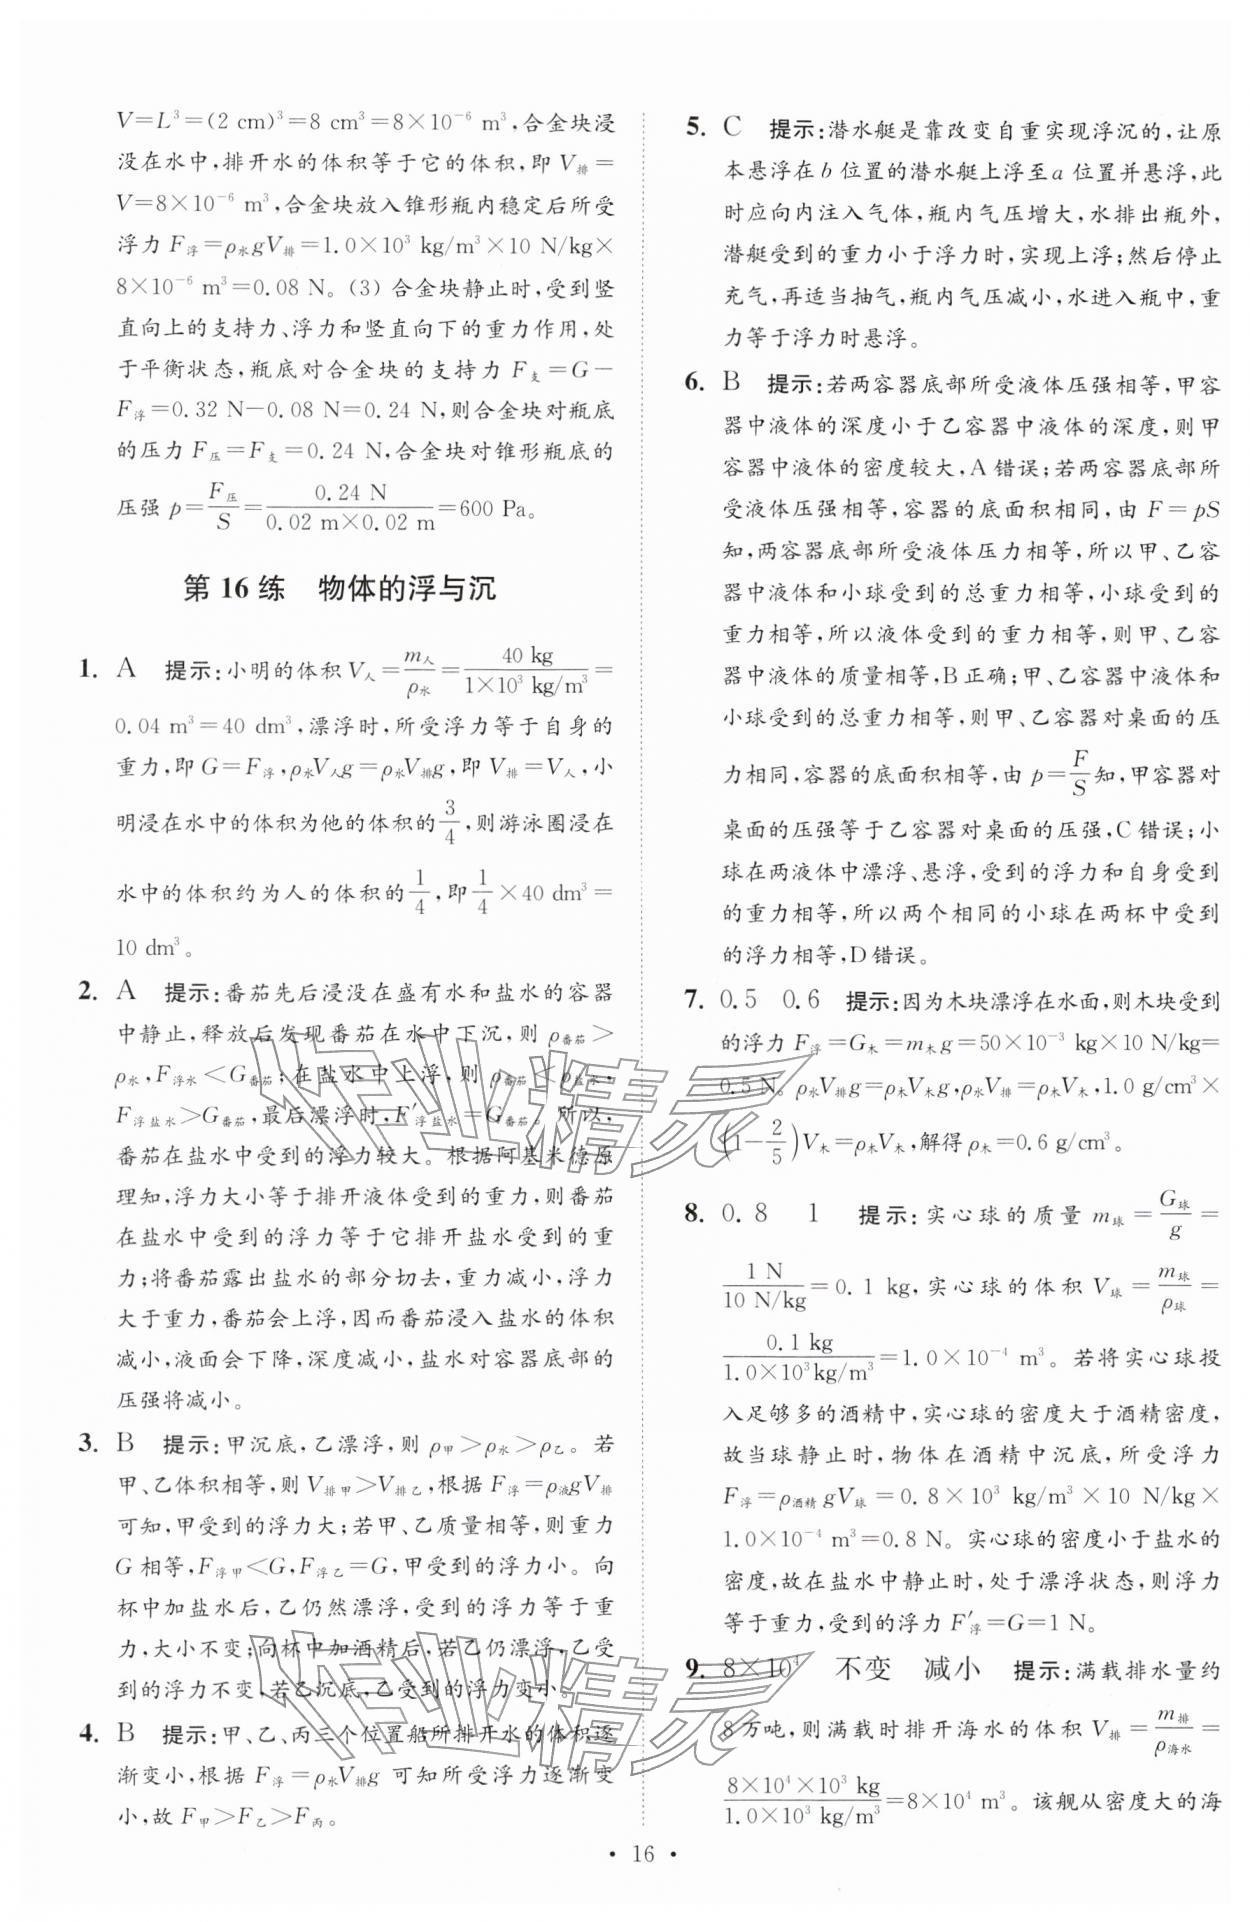 V=L³=(2 cm)³=8 cm³=8×10⁻⁶ m³,合金块浸
没在水中,排开水的体积等于它的体积,即 V排=
V=8×10⁻⁶ m³,合金块放入锥形瓶内稳定后所受
浮力 F浮=ρ水gV排=1.0×10³ kg/m³×10 N/kg×
8×10⁻⁶ m³=0.08 N。(3) 合金块静止时,受到竖
直向上的支持力、浮力和竖直向下的重力作用,处
于平衡状态,瓶底对合金块的支持力 F支=G-
F浮=0.32 N-0.08 N=0.24 N,则合金块对瓶底
的压力 F压=F支=0.24 N,合金块对锥形瓶底的
压强 p=F压/S=0.24 N/(0.02 m×0.02 m)=600 Pa。
第 16 练 物体的浮与沉
1. A 提示:小明的体积 V人=m人/ρ水=40 kg/(1×10³ kg/m³)=
0.04 m³=40 dm³,漂浮时,所受浮力等于自身的
重力,即 G=F浮,ρ水V人g=ρ水V排g,即 V排=V人,小
明浸在水中的体积为他的体积的3/4,则游泳圈浸在
水中的体积约为人的体积的1/4,即1/4×40 dm³=
10 dm³。
2. A 提示:番茄先后浸没在盛有水和盐水的容器
中静止,释放后发现番茄在水中下沉,则 ρ番茄>
ρ水,F浮水<G番茄;在盐水中上浮,则 ρ番茄<ρ盐水,
F浮盐水>G番茄,最后漂浮时,F′浮盐水=G番茄。所以,
番茄在盐水中受到的浮力较大。根据阿基米德原
理知,浮力大小等于排开液体受到的重力,则番茄
在盐水中受到的浮力等于它排开盐水受到的重
力;将番茄露出盐水的部分切去,重力减小,浮力
大于重力,番茄会上浮,因而番茄浸入盐水的体积
减小,液面会下降,深度减小,盐水对容器底部的
压强将减小。
3. B 提示:甲沉底,乙漂浮,则 ρ甲>ρ水>ρ乙。若
甲、乙体积相等,则 V排甲>V排乙,根据 F浮=ρ液gV排
可知,甲受到的浮力大;若甲、乙质量相等,则重力
G 相等,F浮甲<G,F浮乙=G,甲受到的浮力小。向
杯中加盐水后,乙仍然漂浮,受到的浮力等于重
力,大小不变;向杯中加酒精后,若乙仍漂浮,乙受
到的浮力不变,若乙沉底,乙受到的浮力变小。
4. B 提示:甲、乙、丙三个位置船所排开水的体积逐
渐变小,根据 F浮=ρ水V排g 可知所受浮力逐渐变
小,故 F甲>F乙>F丙。
5. C 提示:潜水艇是靠改变自重实现浮沉的,让原
本悬浮在 b 位置的潜水艇上浮至 a 位置并悬浮,此
时应向内注入气体,瓶内气压增大,水排出瓶外,
潜艇受到的重力小于浮力时,实现上浮;然后停止
充气,再适当抽气,瓶内气压减小,水进入瓶中,重
力等于浮力时悬浮。
6. B 提示:若两容器底部所受液体压强相等,甲容
器中液体的深度小于乙容器中液体的深度,则甲
容器中液体的密度较大,A 错误;若两容器底部所
受液体压强相等,容器的底面积相同,由 F=pS
知,两容器底部所受液体压力相等,所以甲、乙容
器中液体和小球受到的总重力相等,小球受到的
重力相等,所以液体受到的重力相等,则甲、乙容
器中液体的质量相等,B 正确;甲、乙容器中液体和
小球受到的总重力相等,则甲、乙容器对桌面的压
力相同,容器的底面积相等,由 p=F/S知,甲容器对
桌面的压强等于乙容器对桌面的压强,C 错误;小
球在两液体中漂浮、悬浮,受到的浮力和自身受到
的重力相等,所以两个相同的小球在两杯中受到
的浮力相等,D 错误。
7. 0.5 0.6 提示:因为木块漂浮在水面,则木块受到
的浮力 F浮=G木=m木g=50×10⁻³ kg×10 N/kg=
0.5 N。ρ水V排g=ρ木V木g,ρ水V排=ρ木V木,1.0 g/cm³×
(1-2/5)V木=ρ木V木,解得 ρ木=0.6 g/cm³。
8. 0.8 1 提示:实心球的质量 m球=G球/g=
1 N/(10 N/kg)=0.1 kg,实心球的体积 V球=m球/ρ球=
0.1 kg/(1.0×10³kg/m³)=1.0×10⁻⁴ m³。若将实心球投
入足够多的酒精中,实心球的密度大于酒精密度,
故当球静止时,物体在酒精中沉底,所受浮力
F浮=ρ酒精gV球=0.8×10³ kg/m³×10 N/kg×
1.0×10⁻⁴ m³=0.8 N。实心球的密度小于盐水的
密度,故在盐水中静止时,处于漂浮状态,则浮力
等于重力,受到的浮力 F′浮=G=1 N。
9. 8×10⁴ 不变 减小 提示:满载排水量约
8万吨,则满载时排开海水的体积 V排=m排/ρ海水=
8×10⁴×10³ kg/(1.0×10³ kg/m³)=8×10⁴ m³。该舰从密度大的海
• 16 •
作业精灵
作业精灵